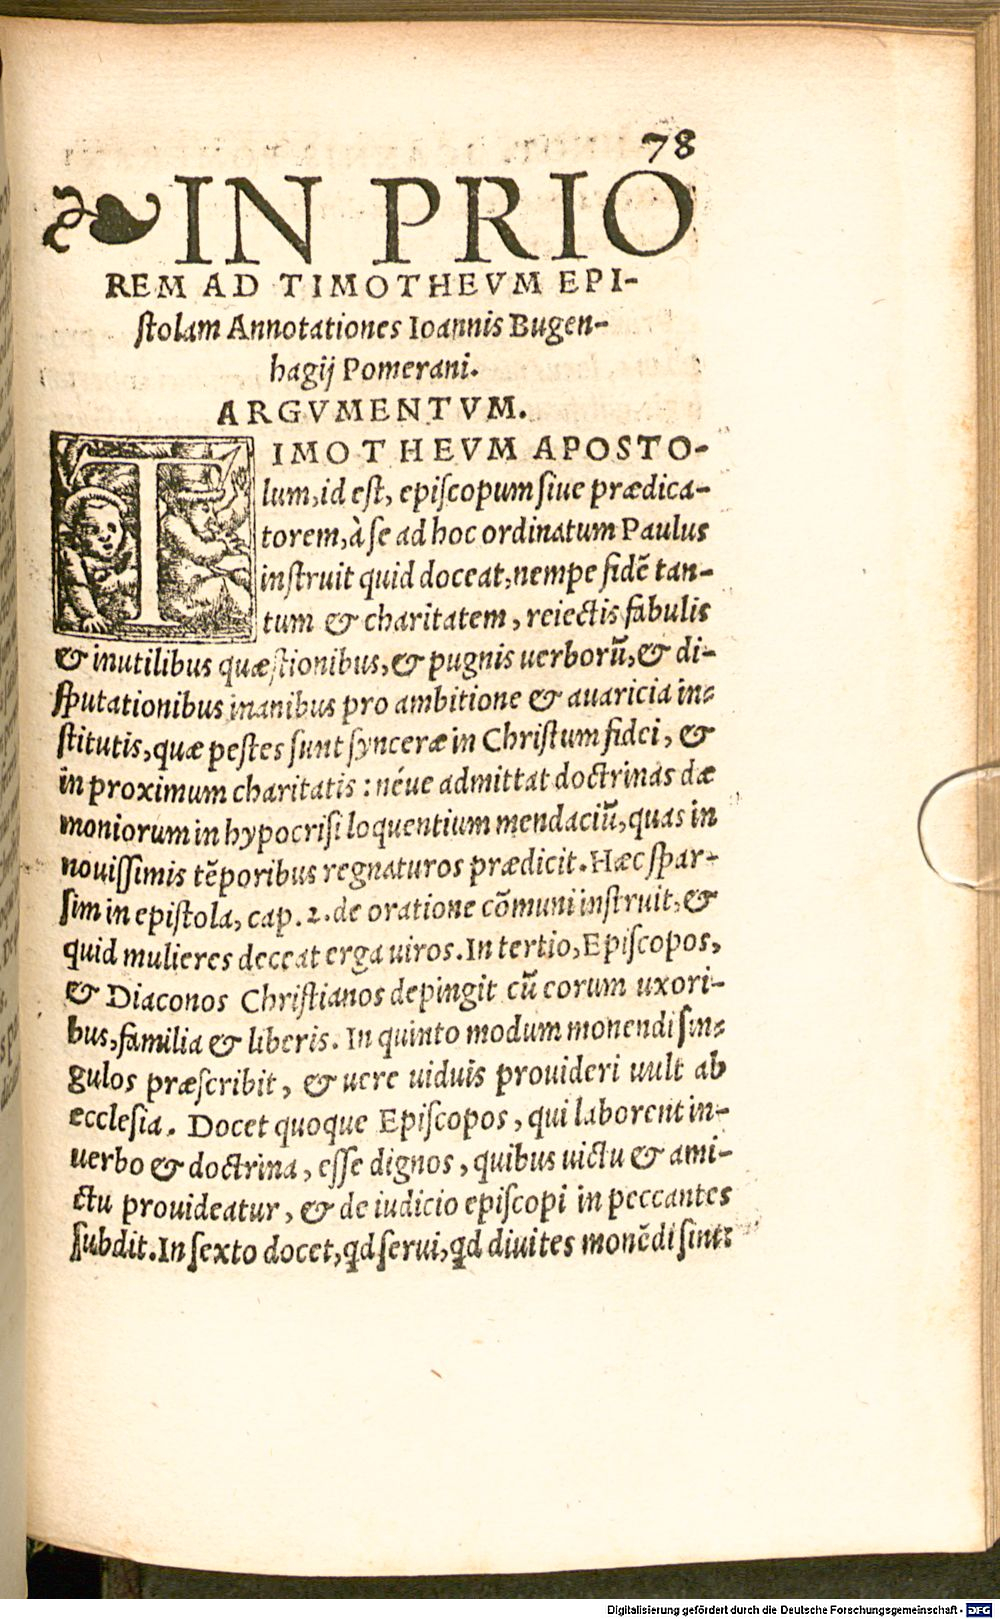 78
❧ IN PRIO
REM AD TIMOTHEVM EPI-
ſtolam Annotationes Ioannis Bugen-
hagij Pomerani.
ARGVMENTVM.
TIMOTHEVM APOSTO-
lum, id eſt, epiſcopum ſiue prædica-
torem, à ſe ad hoc ordinatum Paulus
inſtruit quid doceat, nempe fidẽ tan-
tum & charitatem, reiectis fabulis
& inutilibus quæſtionibus, & pugnis uerborũ, & di-
ſputationibus inanibus pro ambitione & auaricia in-
ſtitutis, quæ peſtes ſunt ſynceræ in Chriſtum fidei, &
in proximum charitatis : néue admittat doctrinas dæ
moniorum in hypocriſi loquentium mendaciũ, quas in
nouiſſimis tẽporibus regnaturos prædicit. Hæc ſpar-
ſim in epiſtola, cap. 2. de oratione cõmuni inſtruit, &
quid mulieres deceat erga uiros. In tertio, Epiſcopos,
& Diaconos Chriſtianos depingit cũ eorum uxori-
bus, familia & liberis. In quinto modum monendi ſin-
gulos præſcribit, & uere uiduis prouideri uult ab
eccleſia. Docet quoque Epiſcopos, qui laborent in-
uerbo & doctrina, eſſe dignos, quibus uictu & ami-
ctu prouideatur, & de iudicio epiſcopi in peccantes
ſubdit. In ſexto docet, qd ſerui, qd diuites monẽdi ſint:
Digitalisierung gefördert durch die Deutsche Forschungsgemeinschaft - DFG